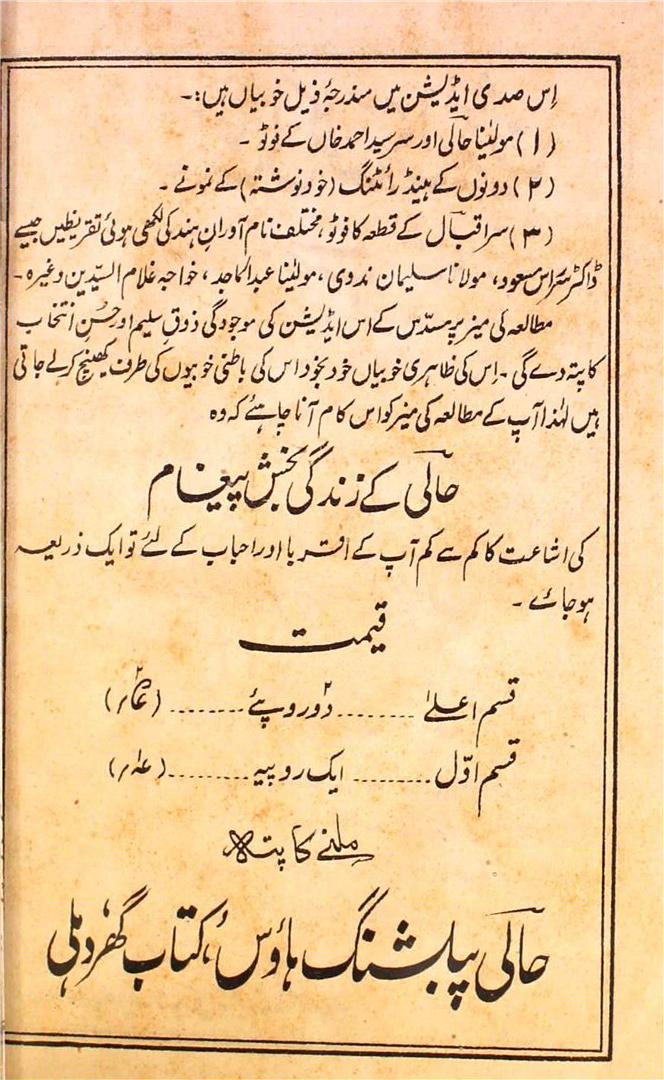 اِس صدی ایڈیشن میں مندرجۂ ذیل خوبیاں ہیں:۔
(۱) مولٰینا حالی اور سر سید احمد خاں کے فوٹو ۔
(۲) دونوں کے ہینڈ رائٹنگ (خود نوشتہ) کے نمونے ۔
(۳) سر اقبال کے قطعہ کا فوٹو، مختلف نام آورانِ ہند کی لکھی ہوئی تقریظیں جیسے
ڈاکٹر سر راس مسعود، مولانا سلیمان ندوی، مولٰینا عبد الماجد، خواجہ غلام السیّدین وغیرہ ۔
مطالعہ کی میز پر مسدّس کے اس ایڈیشن کی موجودگی ذوقِ سلیم اور حُسنِ انتخاب
کا پتہ دے گی ۔ اِس کی ظاہری خوبیاں خود بخود اس کی باطنی خوبیوں کی طرف کھینچ کر لے جاتی
ہیں لہٰذا آپ کے مطالعہ کی میز کو اس کام آنا چاہئے کہ وہ
حالی کے زندگی بخش پیغام
کی اشاعت کا کم سے کم آپ کے اقربا اور احباب کے لئے تو ایک ذریعہ
ہو جائے ۔
قیمت
قسم اعلےٰ ........ دو روپئے ........ (عہ۲؍)
قسم اوّل ........ ایک روپیہ ........ (عہ؍)
ملنے کا پتہ
حالی پبلشنگ ہاؤس، کتاب گھر دہلی